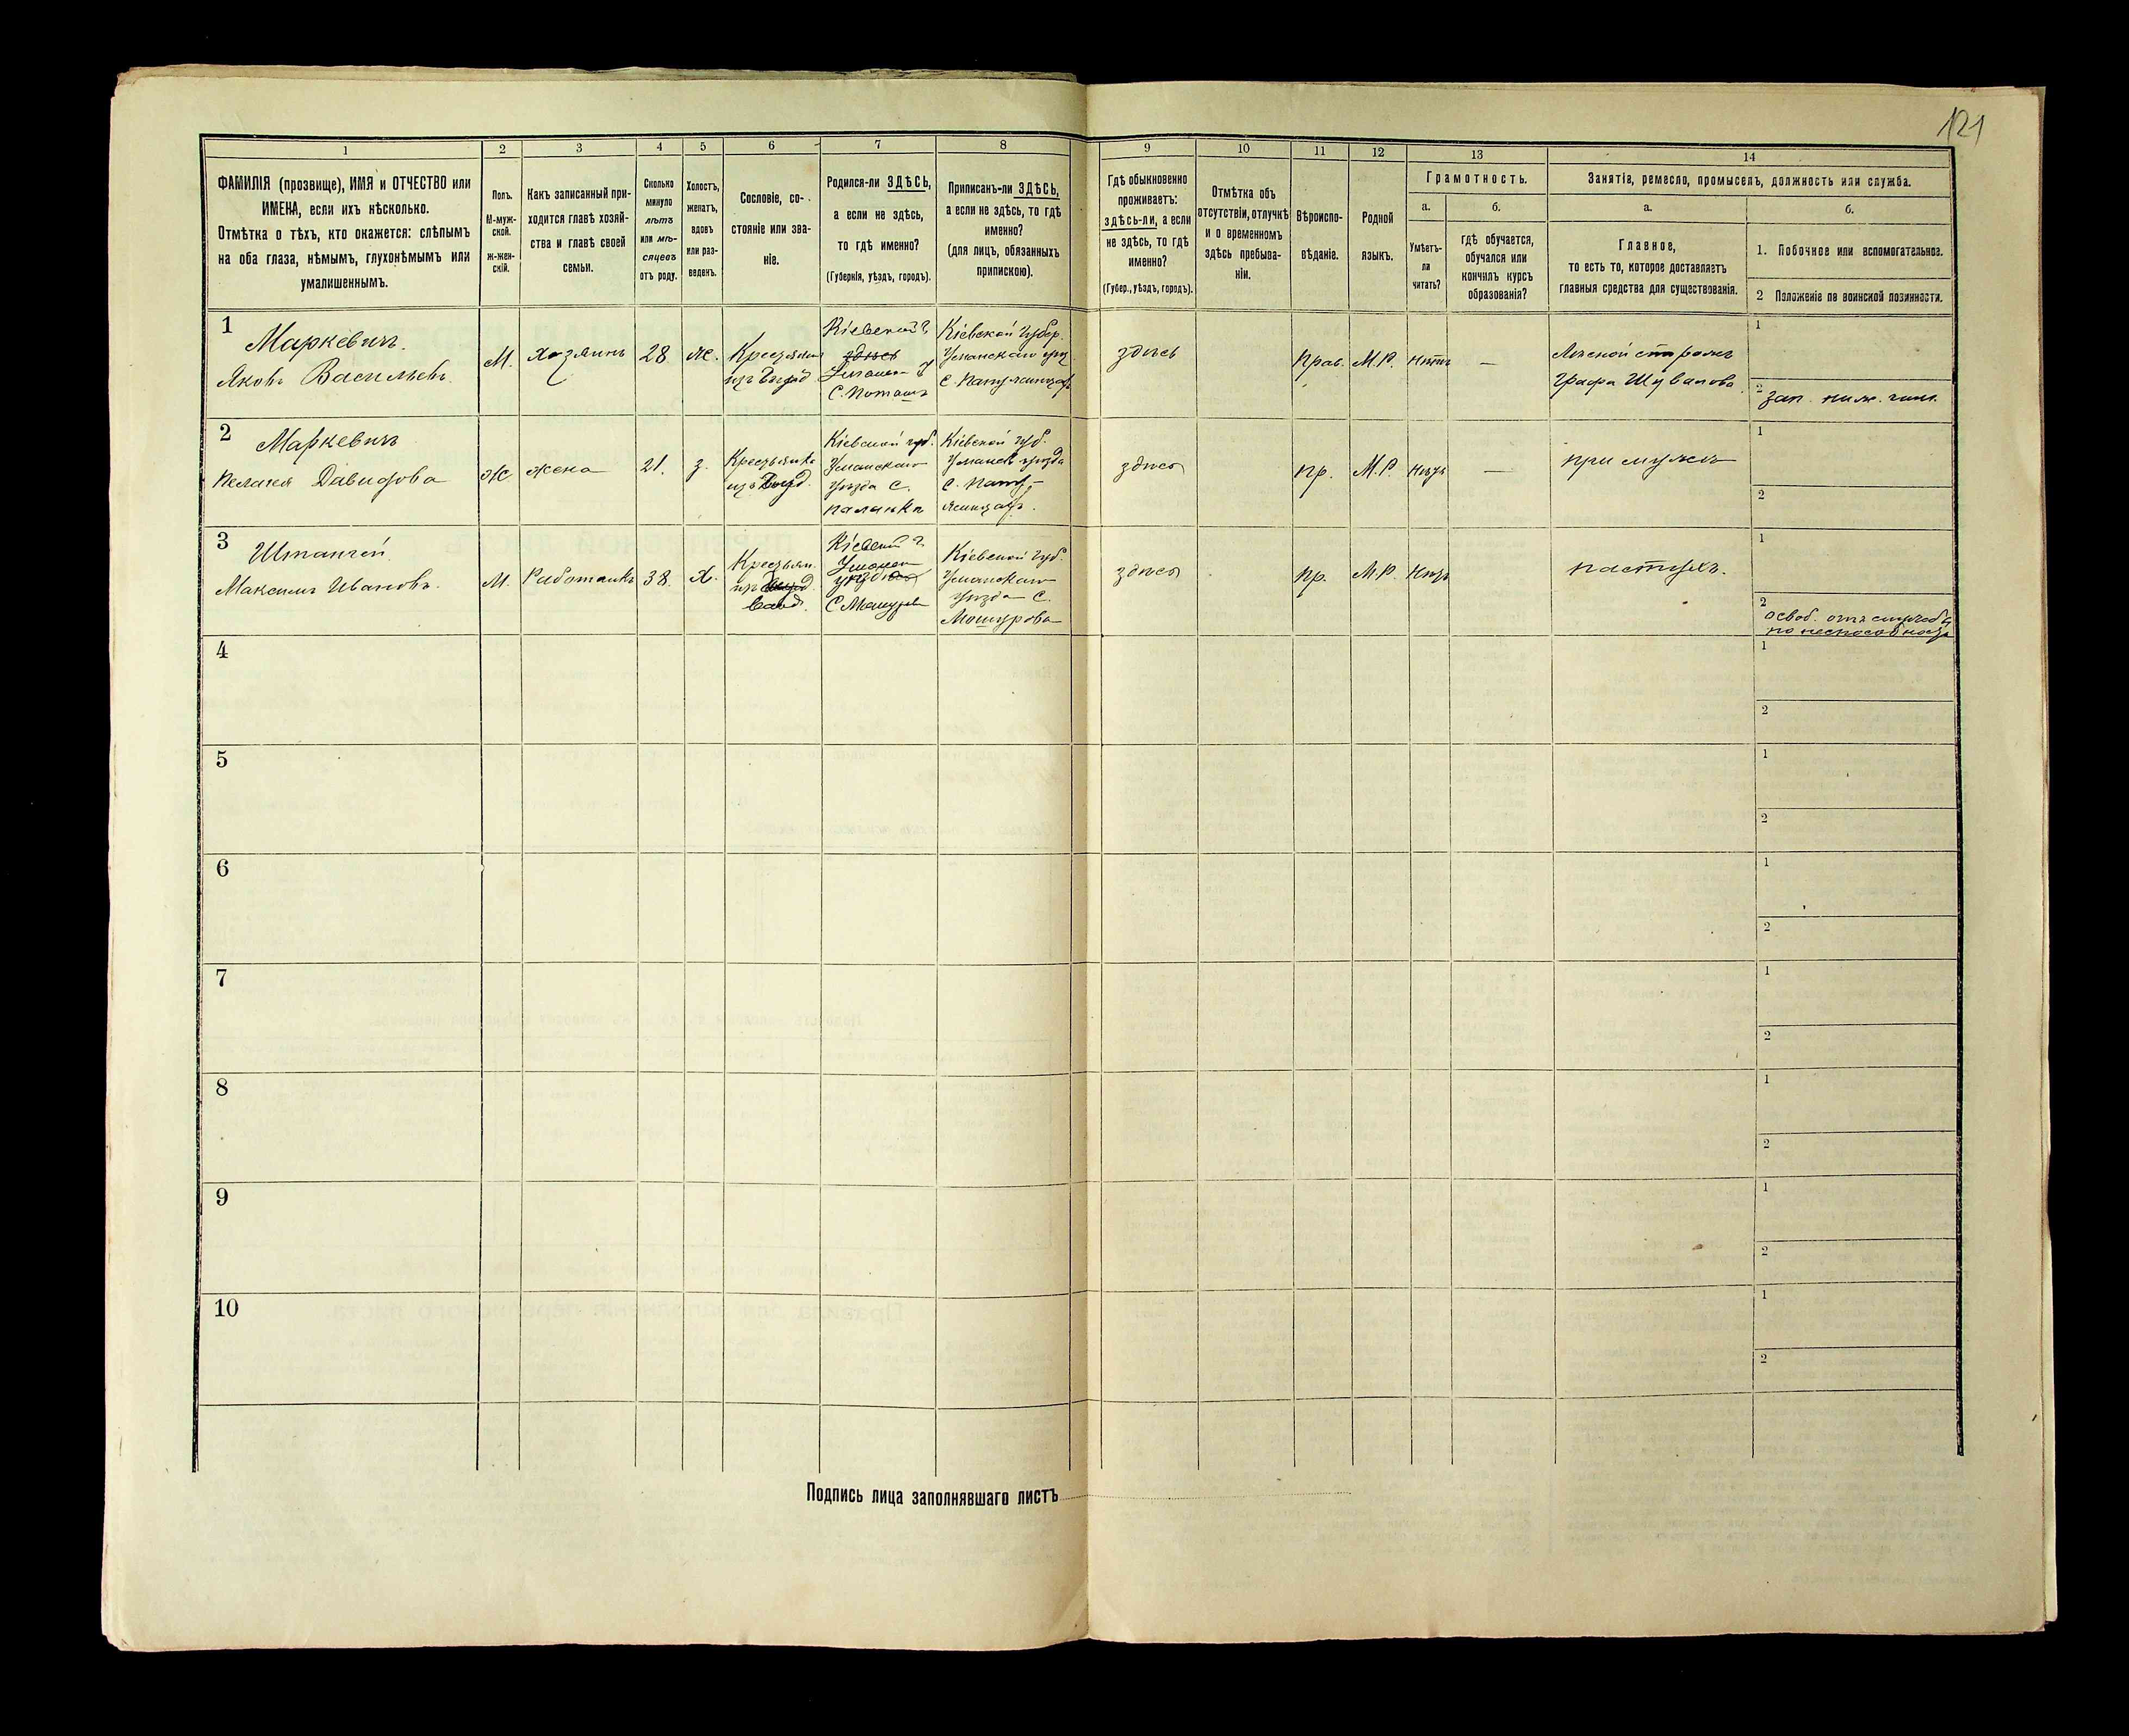 121
1
2
3
4
5
6
7
8
9
10
11
12
13
14
ФАМИЛІЯ (прозвище), ИМЯ и ОТЧЕСТВО или
ИМЕНА, если ихъ нѣсколько.
Отмѣтка о тѣхъ, кто окажется: слѣпымъ
на оба глаза, нѣмымъ, глухонѣмымъ или
умалишеннымъ.
Полъ.
М-муж-
ской.
ж-жен-
скій.
Какъ записанный при-
ходится главѣ хозяй-
ства и главѣ своей
семьи.
Сколько
минуло
лѣтъ
или мѣ-
сяцевъ
отъ роду.
Холостъ,
женатъ,
вдовъ
или раз-
веденъ.
Сословіе, со-
стояніе или зва-
ніе.
Родился-ли ЗДѢСЬ,
а если не здѣсь,
то гдѣ именно?
(Губернія, уѣздъ, городъ).
Приписанъ-ли ЗДѢСЬ,
а если не здѣсь, то гдѣ
именно?
(для лицъ, обязанныхъ
припискою).
Гдѣ обыкновенно
проживаетъ:
здѣсь-ли, а если
не здѣсь, то гдѣ
именно?
(Губер., уѣздъ, городъ).
Отмѣтка объ
отсутствіи, отлучкѣ
и о временномъ
здѣсь пребыва-
ніи.
Вѣроиспо-
вѣданіе.
Родной
языкъ.
Грамотность.
а.
Умѣетъ-
ли
читать?
б.
гдѣ обучается,
обучался или
кончилъ курсъ
образованія?
Занятія, ремесло, промыселъ, должность или служба.
а.
Главное,
то есть то, которое доставляетъ
главныя средства для существованія.
б.
1. Побочное или вспомогательное.
2 Положеніе по воинской повинности.
1
Маркевичъ
Яковъ Васильевъ
М.
Хозяинъ
28
же.
Крестьянин
изъ
Кіевской г
здѣсь
Уманск у
С. Поташъ
Кіевской Губер.
Уманскаго уез
С.
здѣсь
Прав.
М.Р.
нѣтъ
—
Лѣсной сторожъ
Графа Шувалова
1
2
зап. ниж. чин.
2
Маркевичъ
Пелагея Давидова
Ж
жена
21.
з.
Крестьянка
изъ
Кіевской губ.
Уманскаго
уѣзда С.
Паланка
Кіевской губ.
Уманск уѣзда
С.
здѣсь
пр.
М.Р.
нѣтъ
—
при мужѣ
1
2
3
Штангей
Максимъ Ивановъ
М.
Работникъ
38.
Х.
Крестьян.
изъ
Кіевской г
Уманск
уѣзд
С
Кіевской Губ.
Уманскаго
уѣзда С.
Машурова
здѣсь
пр.
М.Р.
Нѣтъ
пастухъ.
1
2
освоб. отъ службы
по неспособности
4
1
2
5
1
2
6
1
2
7
1
2
8
1
2
9
1
2
10
1
2
Подпись лица заполнявшаго листъ